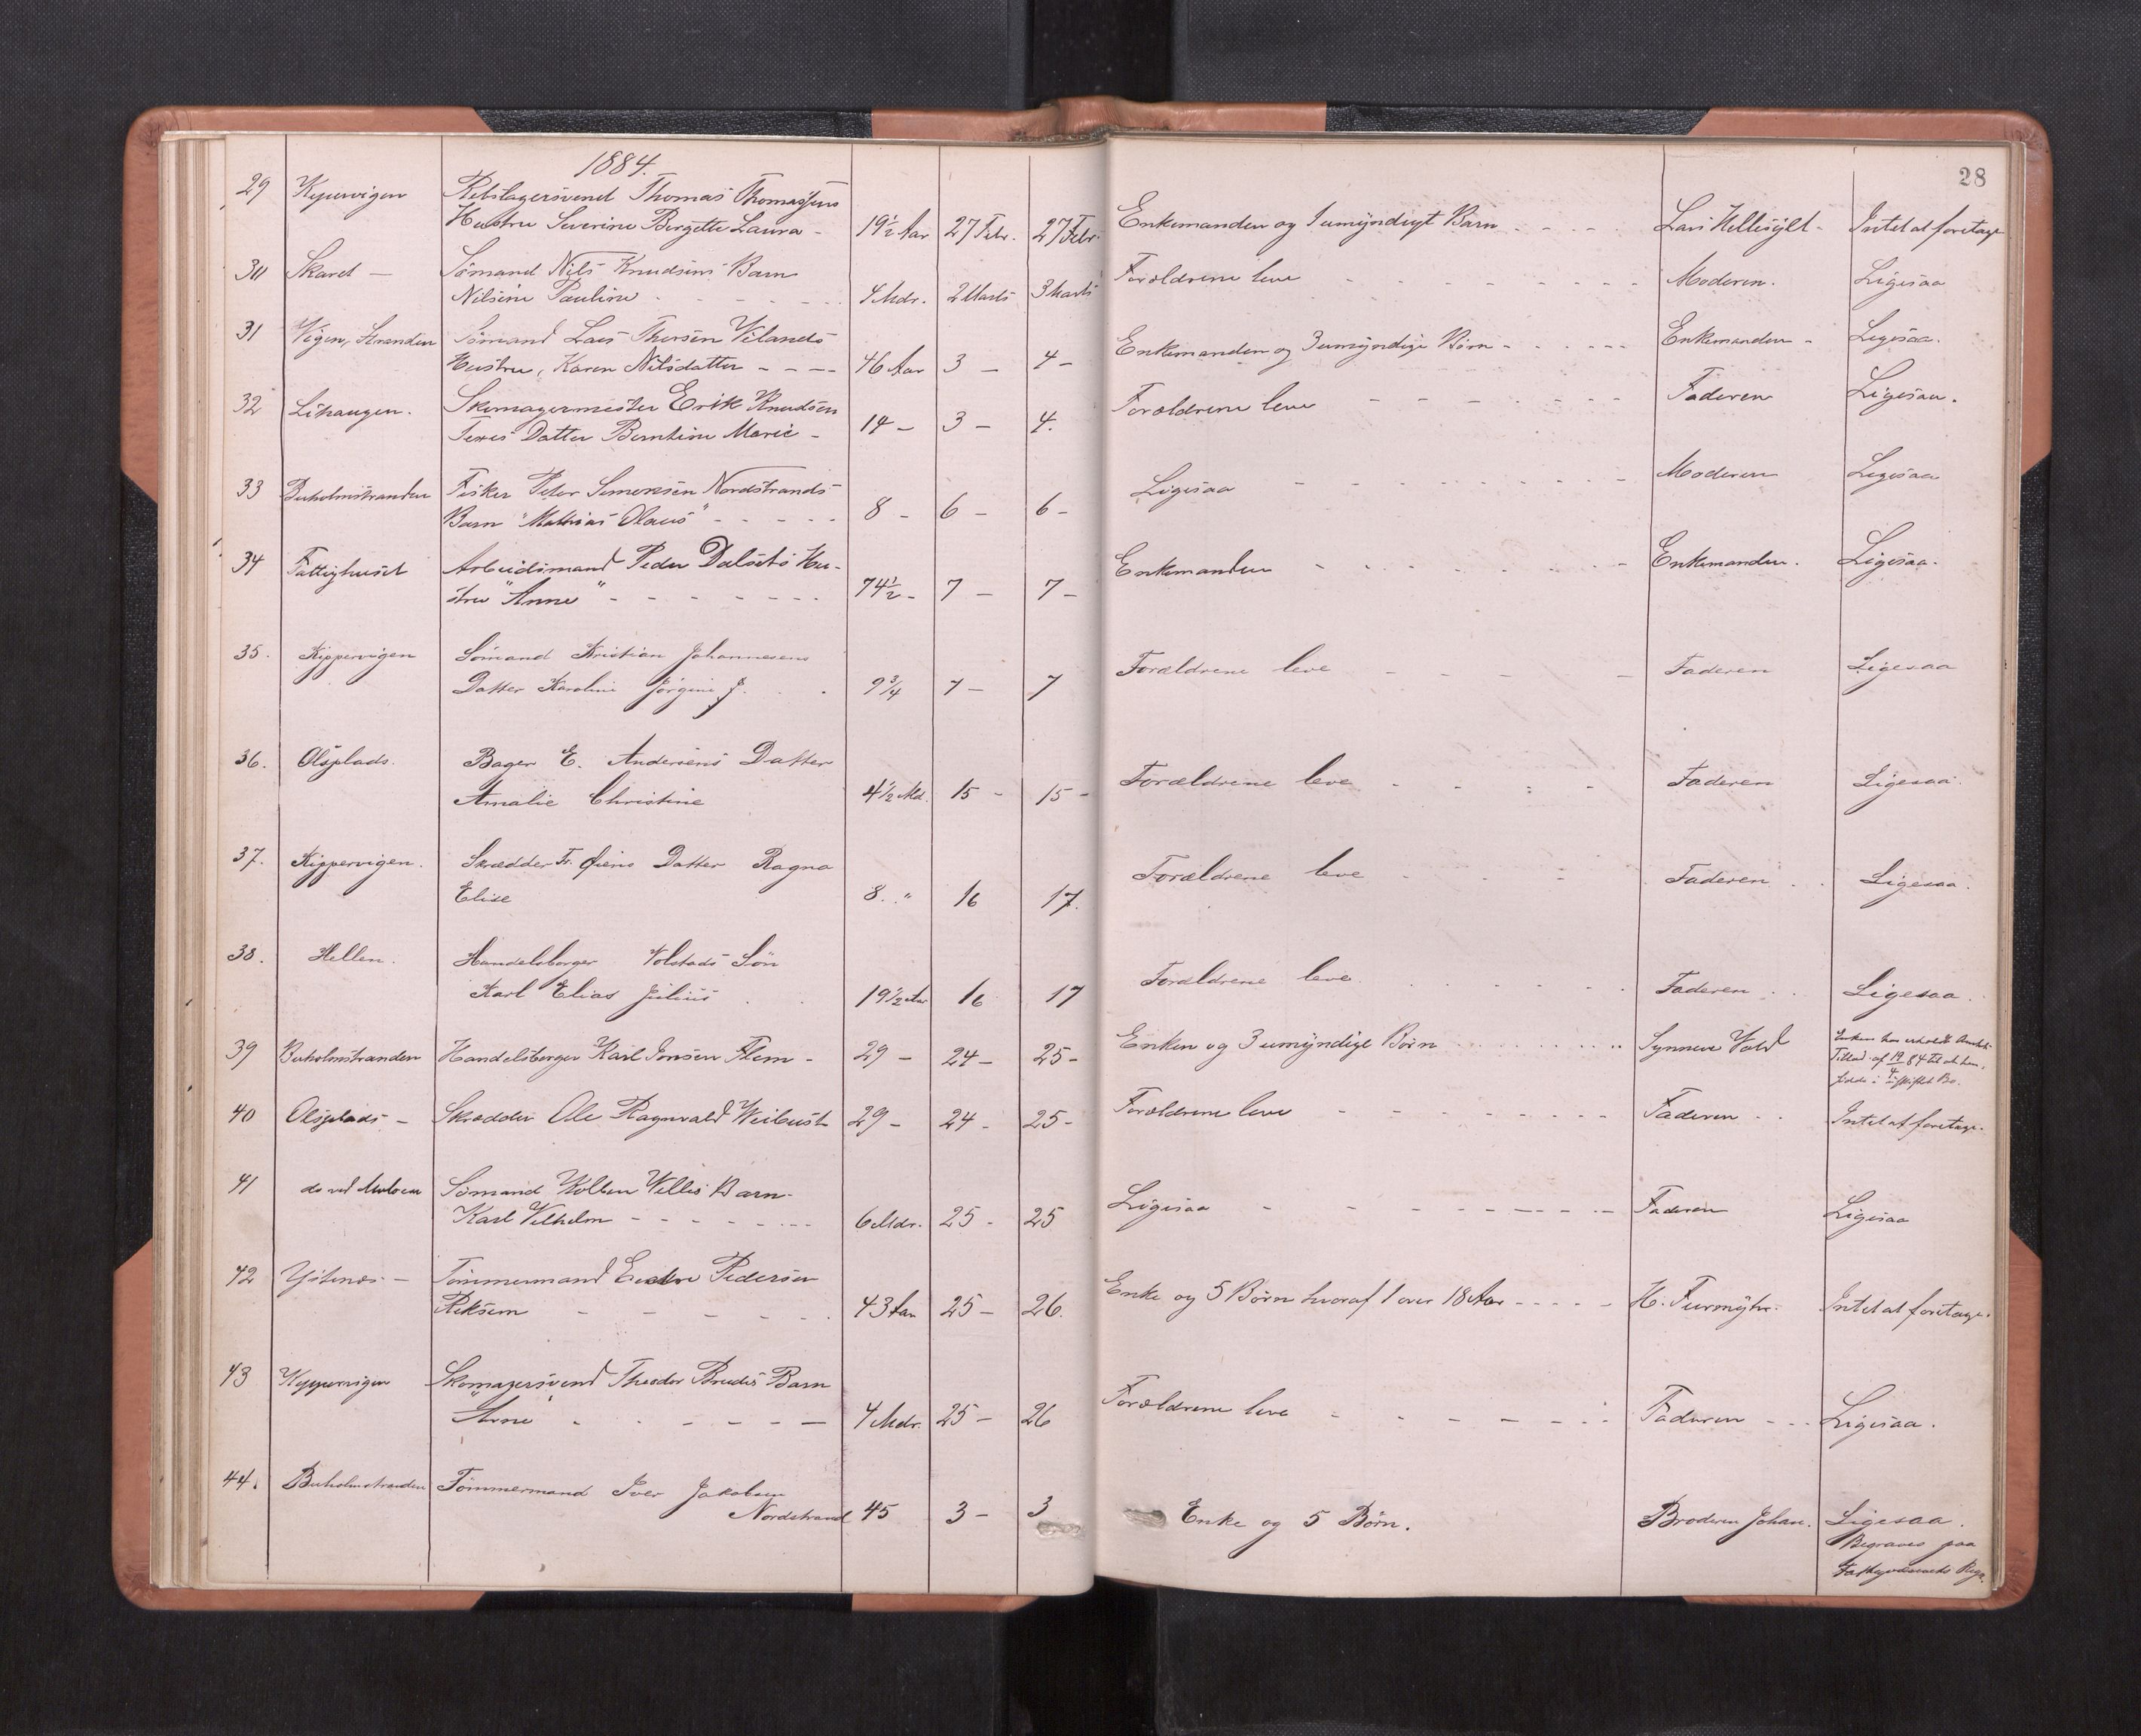 28
1884.
29 Kipervigen Rebslagersvend Thomas Thomassens
Hustru Severine Bergette Laura - 19½ Aar 27 Febr. 27 Febr. Enkemanden og 1 umyndigt Barn - - - - Lars Hellesylt - Intet at foretage
30 Skaret - Sømand Nils Knudsens Barn
Nilsine Pauline - - - - - 4 Mdr. 2 Marts 3 Marts Forældrene leve - - - - - - - Moderen. Ligesaa
31 Vigen, Stranden Sømand Lars Thorsen Velands
Hustru, Karen Nilsdatter - - - - 46 Aar 3 - 4 - Enkemanden og 3 umyndige Børn - - - - - Enkemanden - Ligesaa.
32 Lihaugen. Skomagermester Erik Knudsen
Datter Berntine Marie - 14 - 3 - 4. Forældrene leve - - - - - - - Faderen Ligesaa.
33 Buholmstranden Fisker Peter Simensen Nordstrands
Barn "Mathias Olaus" - - - - - 8 - 6 - 6 - Ligesaa - - - - - - - - Moderen Ligesaa
34 Fattighuset Arbeidsmand Peder Dalsets Hu-
stru "Anne" - - - - - - - - 74½ - 7 - 7 - Enkemanden - - - - - - - - Enkemanden. Ligesaa.
35. Kippervigen Sømand Kristian Johannesens
Datter Karoline Jørgine J. 9¾ 7 - 7 Forældrene leve - - - - - Faderen Ligesaa
36. Olsplads. Bager E. Andersens Datter
Amalie Christine 4½ Md. 15 - 15 - Forældrene leve - - - - Faderen Ligesaa.
37. Kippervigen. Skrædder Fr. Øiens Datter Ragna
Elise 8. " 16 17. Forældrene leve Faderen . . Ligesaa.
38. Hellen. Handelsborger Volstads Søn
Karl Elias Julius 19½ Aar 16 17 Forældrene leve Faderen . . Ligesaa.
39 Buholmstranden Handelsborger Karl Jonsen Flem - 29 - 24 - 25 - Enken og 3 umyndige Børn . . . . . . Synneve Vold Enken har erholdt Amtets
Tillad. af 19/4 84 til at hen-
sidde i uskiftet Bo.
40 Olsplads - Skrædder Ole Ragnvald Weibust 29 - 24 - 25 - Forældrene leve - - - - - - - Faderen . . Intet at foretage.
41 do ved Moloen Sømand Willis Barn -
Karl Vilhelm - - - - - - - - 6 Mdr. 25 - 25 Ligesaa - - - - - - - - Faderen Ligesaa
42 Ystenes - Tømmermand Endre Pedersen
Reksem - - - - - - 43 Aar 25 - 26. Enke og 5 Børn hvoraf 1 over 18 Aar - - - - - H. Furmyhr. Intet at foretage.
43 Kippervigen Skomagersvend Theodor Bredes Barn
"Arne" - - - - - - - 4 Mdr. 25 - 26 Forældrene leve - - - - - - - Faderen - - - Ligesaa.
44. Buholmstranden Tømmermand Iver Jakobsen
Nordstrand 45 3 - 3 Enke og 5 Børn. Broderen Johan. Ligesaa.
Begraves paa
Fattigvæsenets Regn.